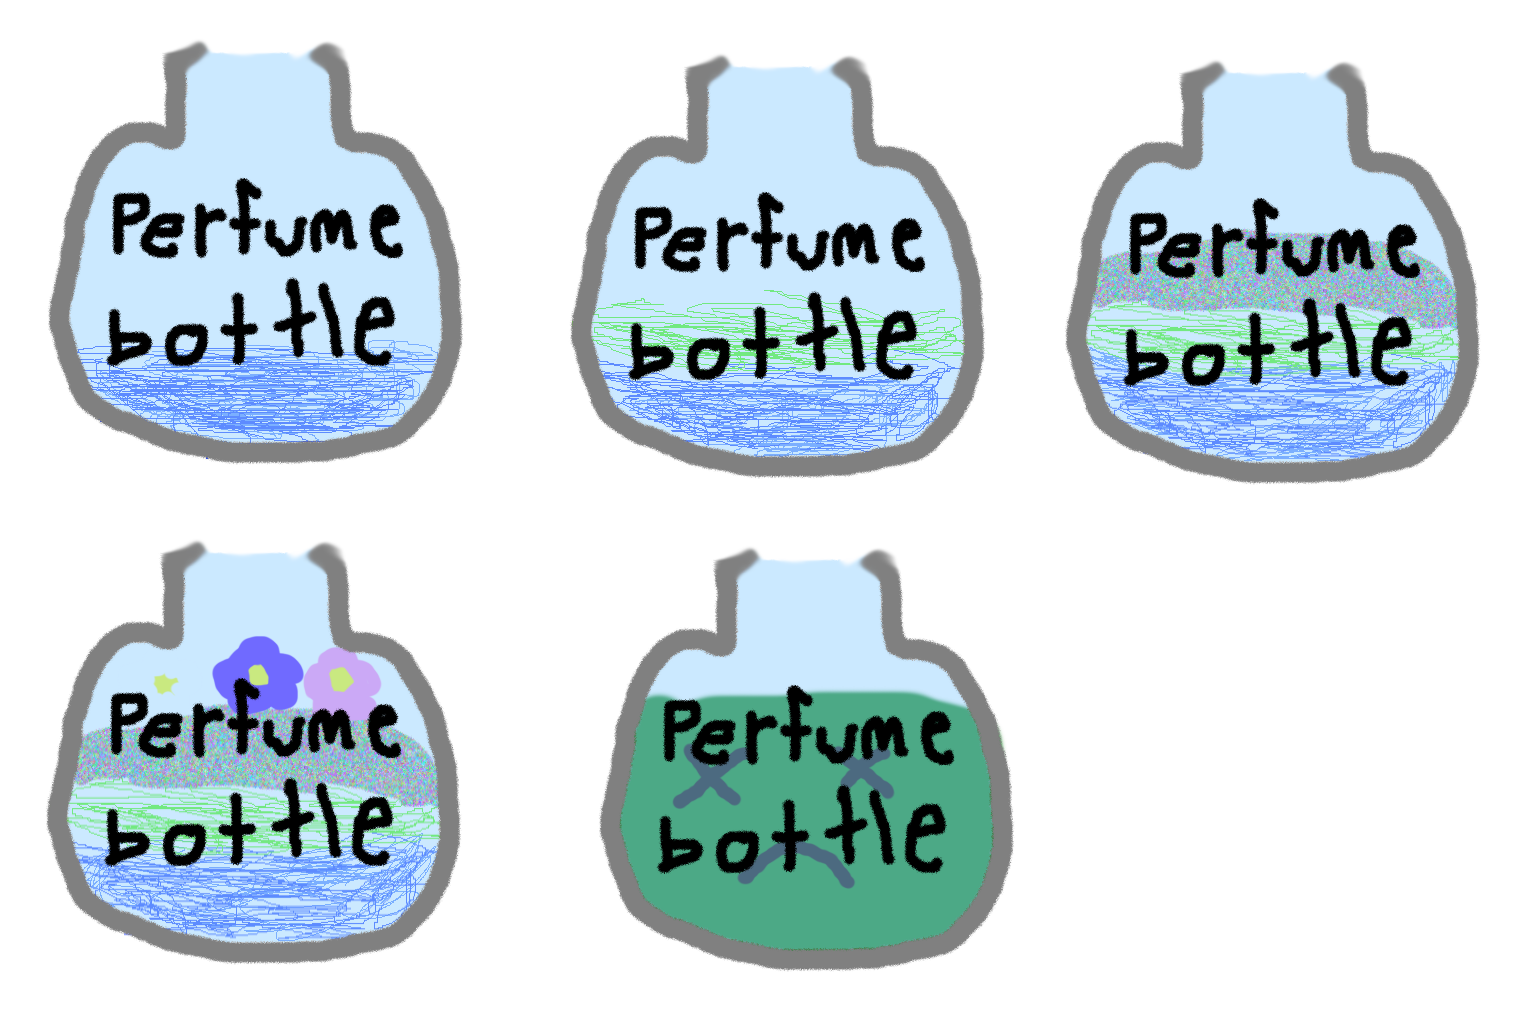 Perfume
bottle
Perfume
bottle
Perfume
bottle
Perfume
bottle
Perfume
bottle